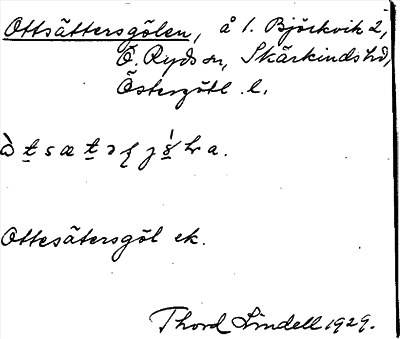 Ottsättersgölen, å 1. Björkvik 2,
Ö. Ryds sn, Skärkinds hd,
Östergötl. l.
Ottesätersgöl ek.
Thord Lindell 1929.